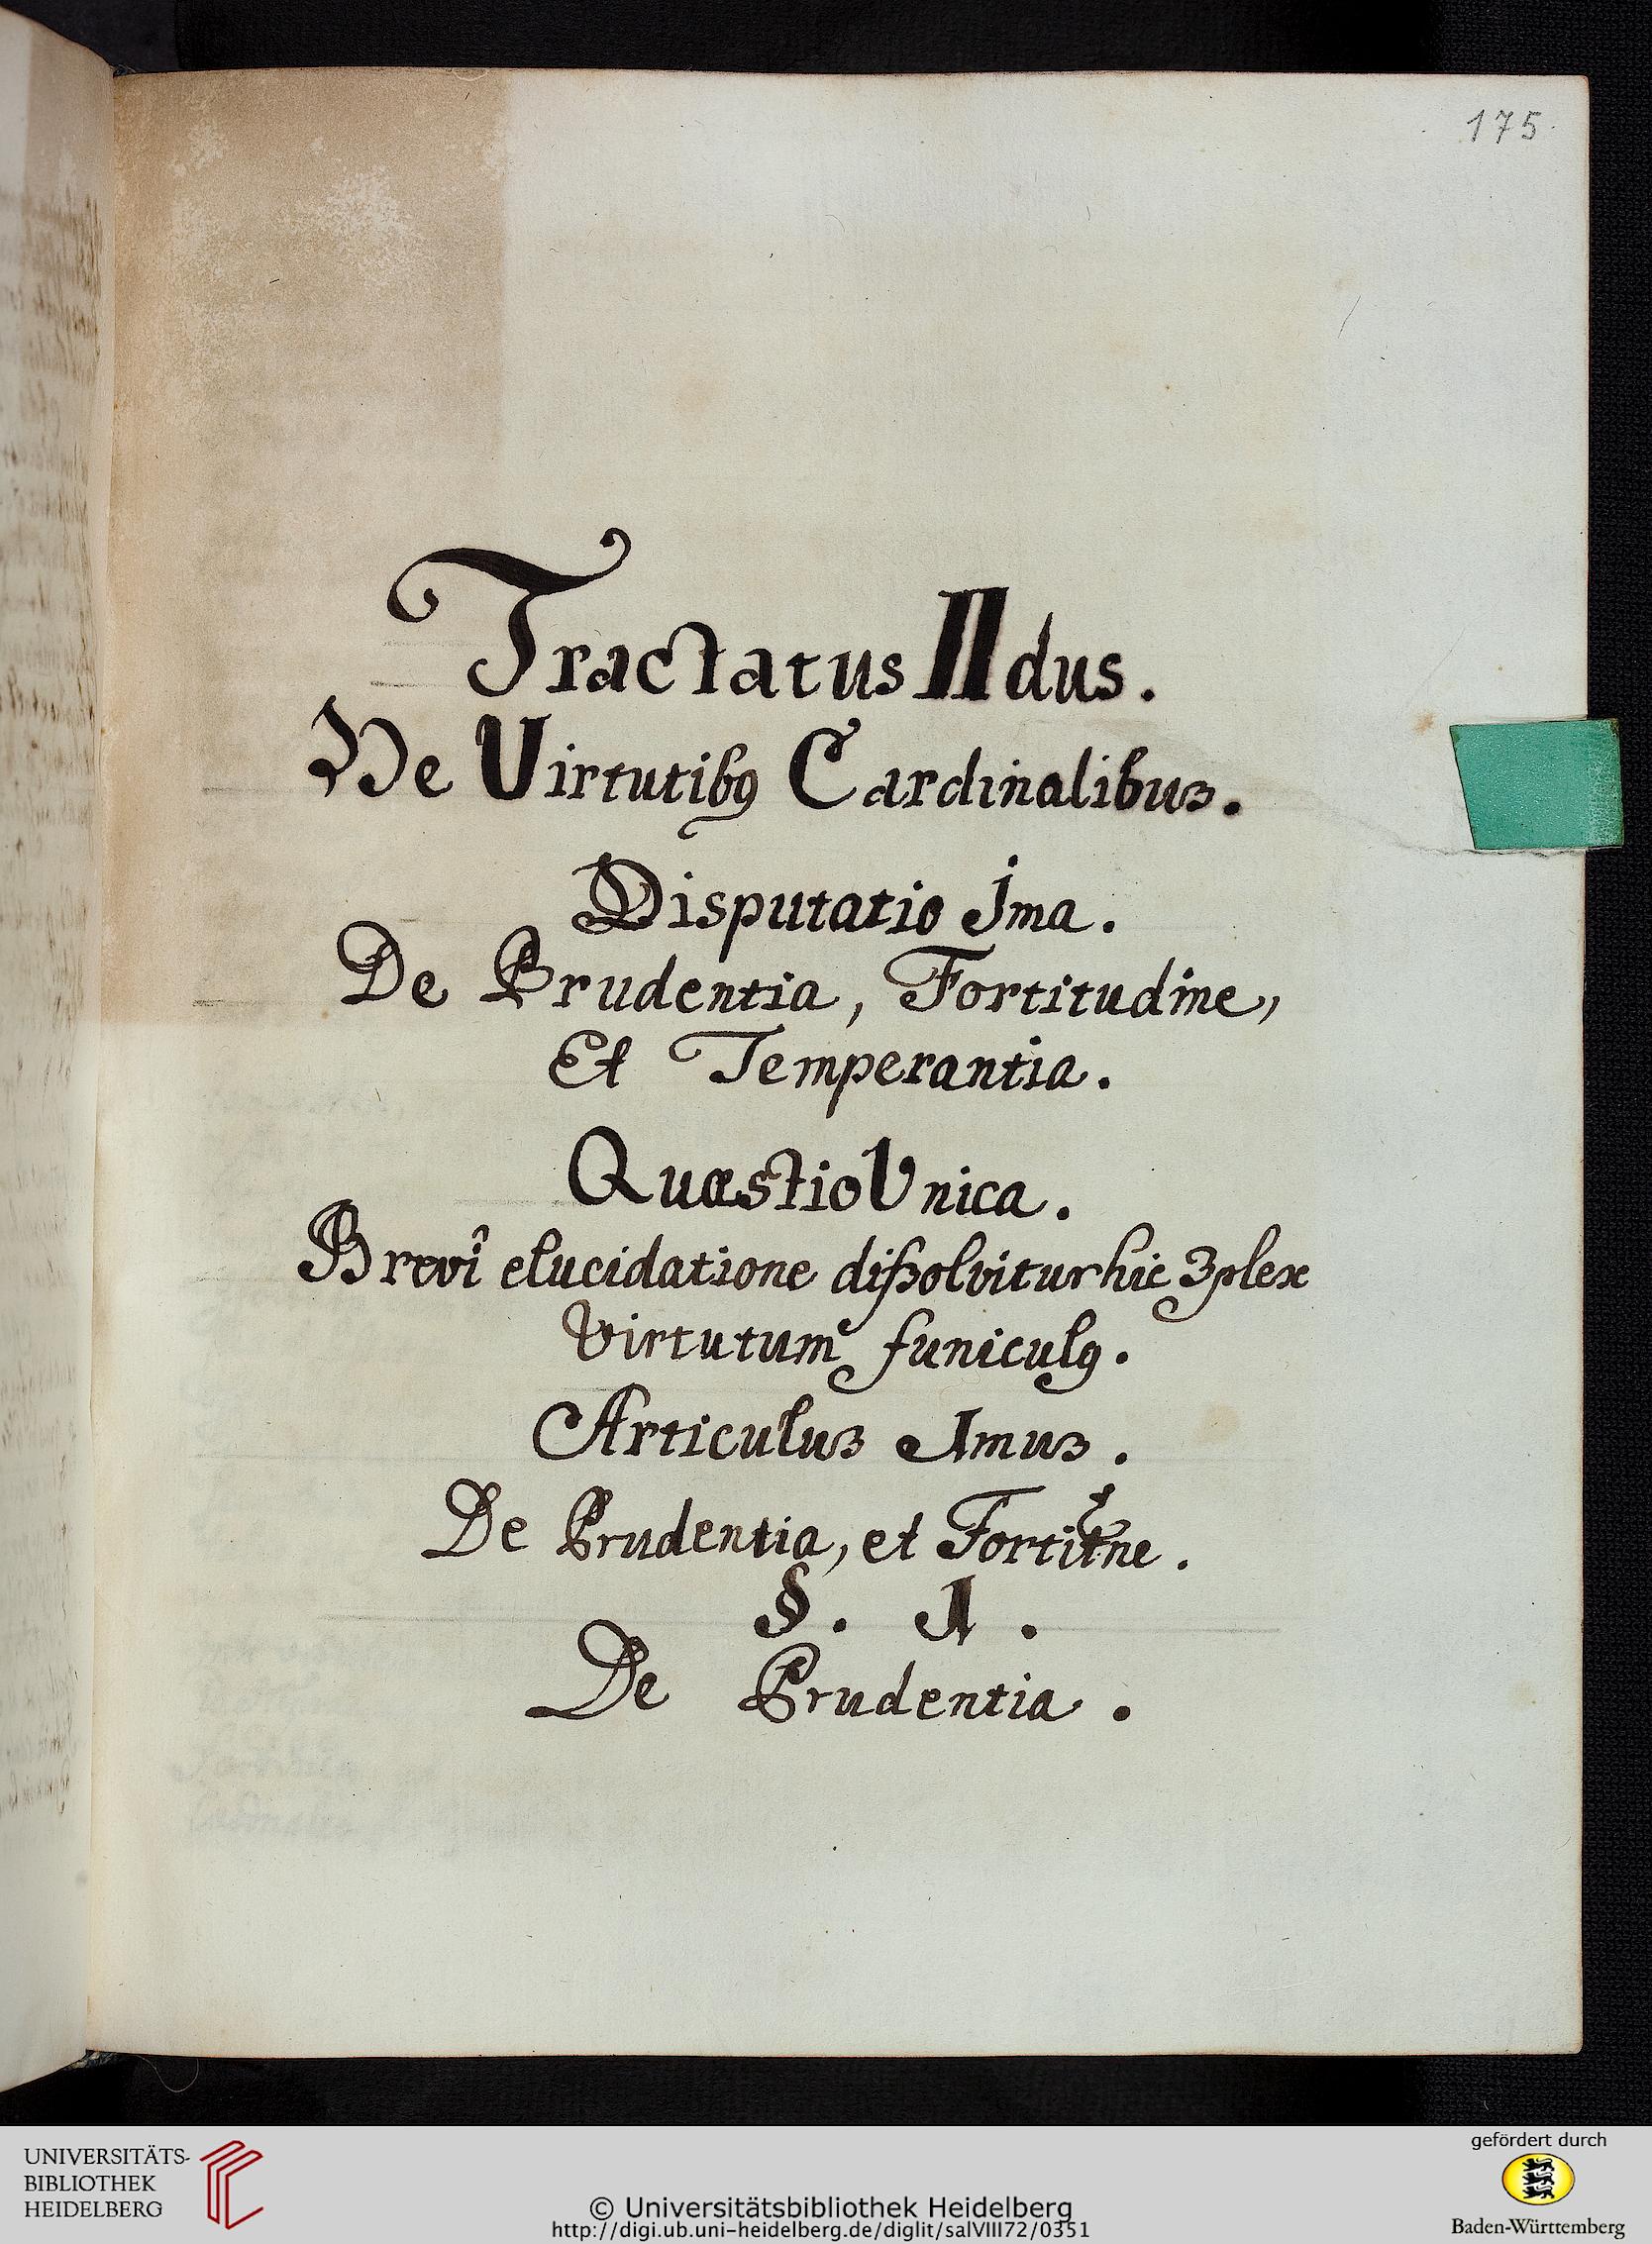 175.
Tractatus IIdus.
De Virtutibꝰ Cardinalibus.
Disputatio Ima.
De Prudentia, Fortitudine,
Et Temperantia.
Quæstio Vnica.
Brevî elucidatione dißolvitur hic 3plex
Virtutum funiculꝰ.
Articulus Imus.
De Prudentia, et Fortitne.
§. I.
De Prudentia.
UNIVERSITÄTS-
BIBLIOTHEK
HEIDELBERG
© Universitätsbibliothek Heidelberg
http://digi.ub.uni-heidelberg.de/diglit/salVIII72/0351
gefördert durch
Baden-Württemberg